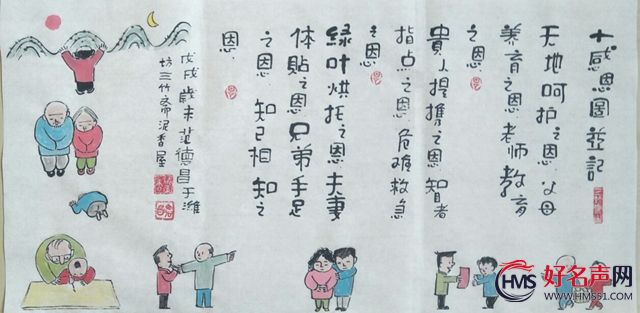 十感恩圖並記
天地呵护之恩.父母
养育之恩.老师教育
之恩.
貴人提携之恩.智者
指点之恩.危难救急
之恩.
緑叶烘托之恩.夫妻
体貼之恩.兄弟手足
之恩.知己相知之
恩.
戊戌歲末范德昌于濰
坊三竹斋泥香屋
HMS
好名声网
WWW.HMS51.COM